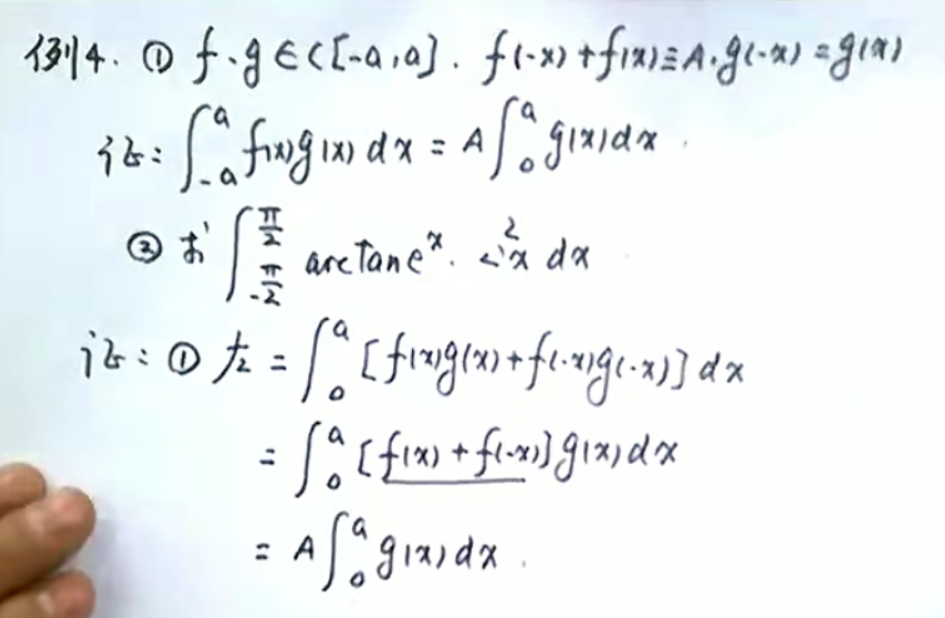 例4. ① f·g∈C[-a,a]. f(-x)+f(x)≡A. g(-x)=g(x)
证: ∫_{-a}^{a} f(x)g(x)dx = A∫_0^a g(x)dx.
② 求 ∫_{-π/2}^{π/2} arctan e^x · x dx
证: ① 左 = ∫_0^a [f(x)g(x)+f(-x)g(-x)]dx
= ∫_0^a [f(x)+f(-x)]g(x)dx
= A∫_0^a g(x)dx.